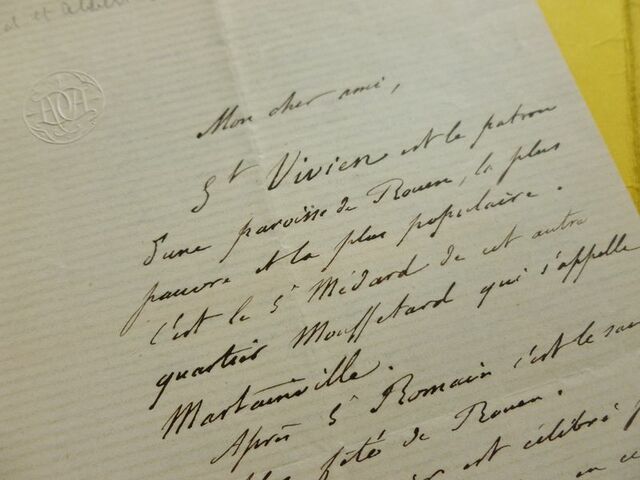 et
Mon cher ami,
St Vivien est le patron
d'une paroisse de Rouen, la plus
pauvre et la plus populaire.
C'est le St Médard de cet autre
quartier Mouffetard qui s'appelle
Martainville.
Après St Romain c'est le
fêté de Rouen.
est célébré